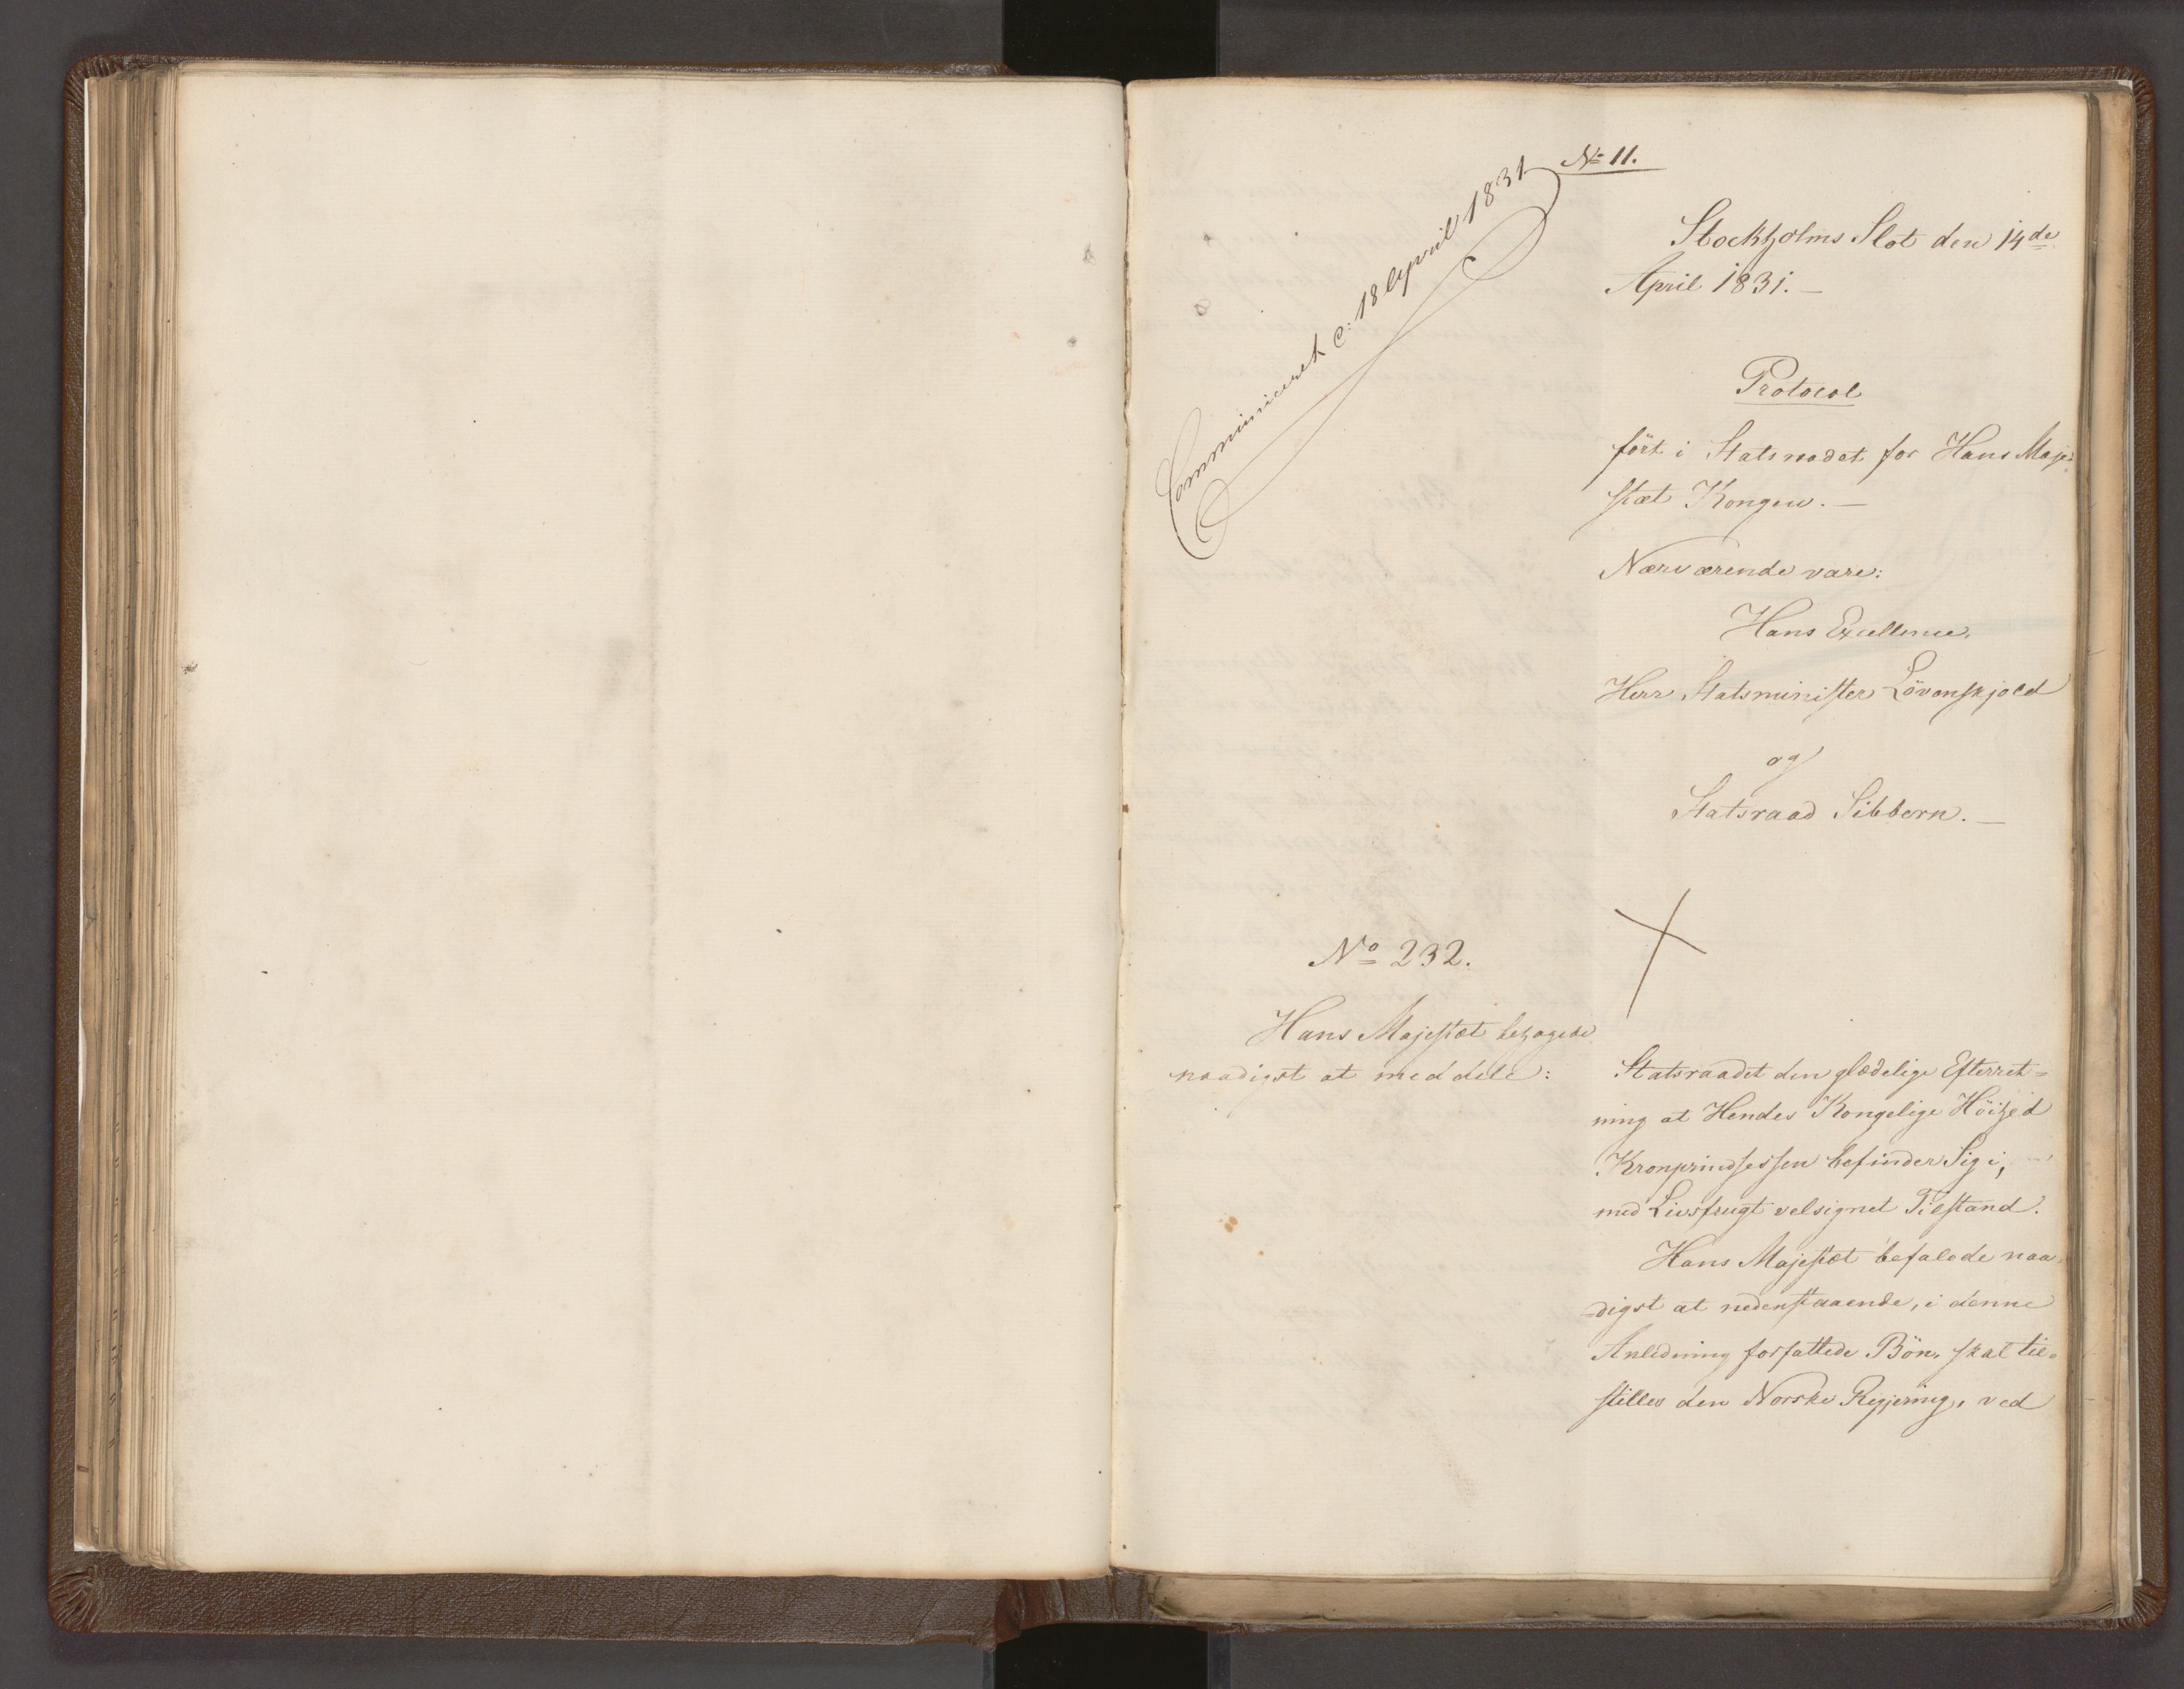 No 11.
Communiceret d: 18 April 1831
Stockholms Slot den 14de
April 1831. —
Protocol
fört i Statsraadet for Hans Maje-
stæt Kongen. —
Nærværende vare:
Hans Excellence,
Herr Statsminister Lövenskjold
og
Statsraad Sibbern. —
No 232.
Hans Majestæt behagede
naadigst at meddele:
Statsraadet den glædelige Efterret=
ning at Hendes Kongelige Höihed
Kronprindsessen befinder Sig i,
med Livsfrugt velsignet Tilstand.
Hans Majestæt befalede naa-
digst at nedenstaaende, i denne
Anledning forfattede Bön, skal til-
stilles den Norske Regjering, ved